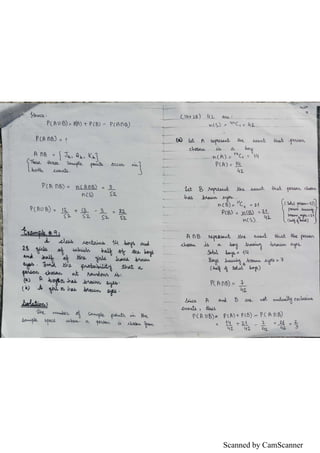 Since:
P(A∪B) = P(A) + P(B) - P(A∩B)
P(A∩B) = ?
A∩B = {J♠, Q♠, K♠}
{These three sample points occur in
both events}
P(A∩B) = n(A∩B)/n(S) = 3/52
P(A∪B) = 12/52 + 13/52 - 3/52 = 22/52
Example # 9:
A class contains 14 boys and
28 girls of which half of the boys
and half of the girls have brown
eyes. Find the probability that a
person chosen at random is:
(a) A boy has brown eyes
(b) A girl has brown eyes
Solution:
The number of sample points in the
sample space when a person is chosen from
(14+28) 42 are:
n(S) = ⁴²C₁ = 42
(a) Let A represent the event that person
chosen is a boy
n(A) = ¹⁴C₁ = 14
P(A) = 14/42
Let B represent the event that person chosen
has brown eyes
n(B) = ²¹C₁ = 21
P(B) = n(B)/n(S) = 21/42
{∴ Total person = 42
person having
brown eyes = 21
(half of total)}
A∩B represent the event that the person
chosen is a boy having brown eyes
Total boys = 14
Boys having brown eyes = 7
(half of total boys)
P(A∩B) = 7/42
Since A and B are not mutually exclusive
events, thus
P(A∪B) = P(A) + P(B) - P(A∩B)
= 14/42 + 21/42 - 7/42 = 28/42 = 2/3
Scanned by CamScanner